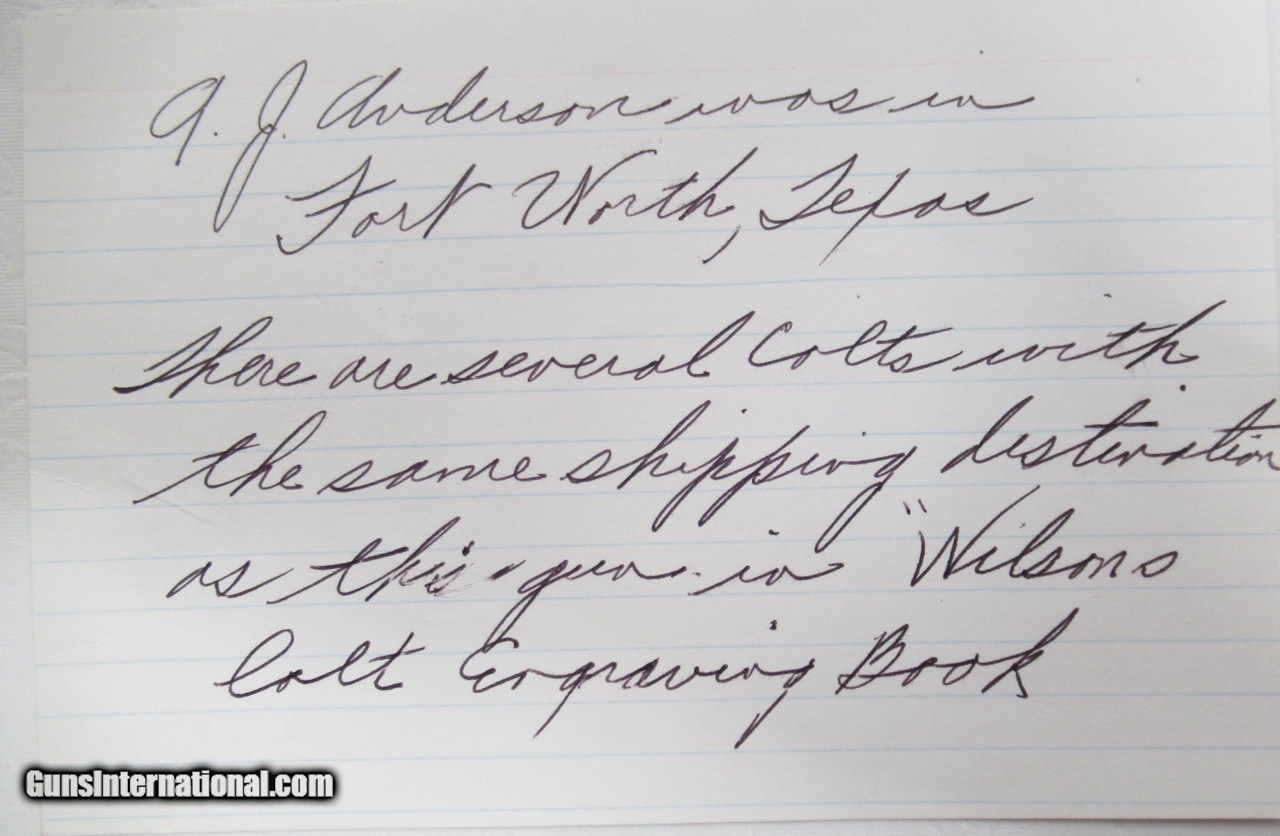 A. J. Anderson was in
Fort Worth, Texas
There are several Colts with
the same shipping destination
as this gun in "Wilsons
Colt Engraving Book
GunsInternational.com